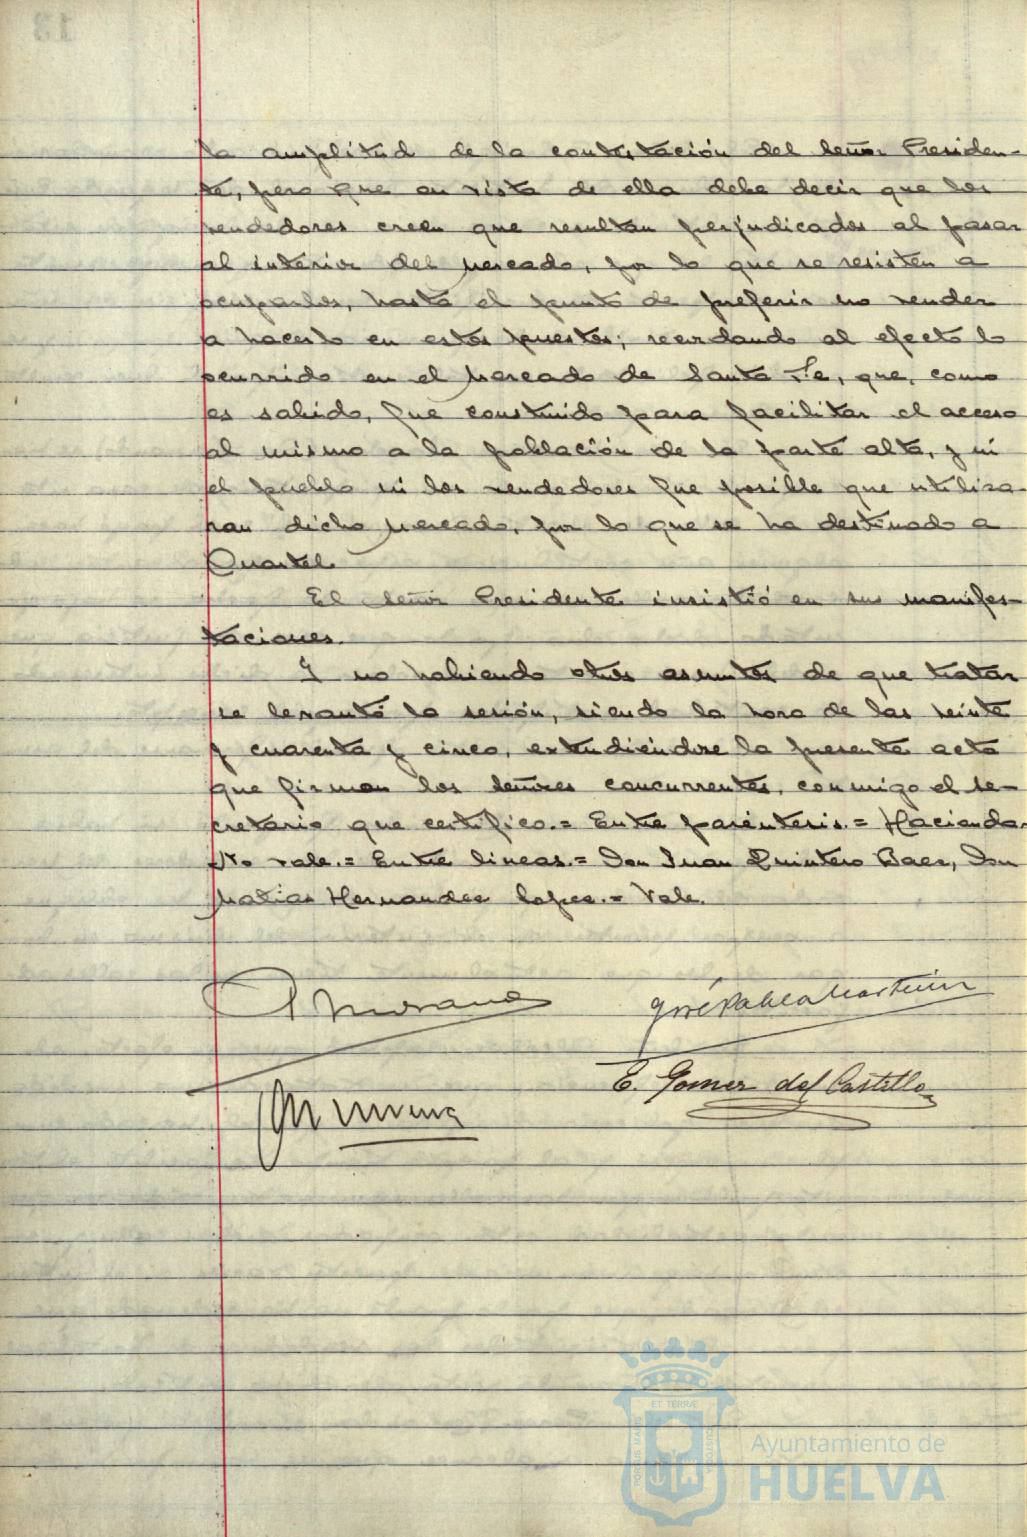 la amplitud de la contestación del Señor Presiden-
te, pero que en vista de ella debe decir que los
vendedores creen que resultan perjudicados al pasar
al interior del Mercado, por lo que se resisten a
ocuparlos, hasta el punto de preferir no vender
a hacerlo en estos puestos; recordando al efecto lo
ocurrido en el Mercado de Santa Fe, que, como
es sabido, fue construido para facilitar el acceso
al mismo a la población de la parte alta, y ni
el pueblo ni los vendedores fue posible que utiliza-
ran dicho Mercado, por lo que se ha destinado a
Cuartel.
El Señor Presidente insistió en sus manifes-
taciones.
Y no habiendo otros asuntos de que tratar
se levantó la sesión, siendo la hora de las veinte
y cuarenta y cinco, extendiéndose la presente acta
que firman los Señores concurrentes, conmigo el Se-
cretario que certifico.= Entre paréntesis.= Hacienda.
No vale.= Entre lineas.= Don Juan Quintero Baez, Don
Matias Hernandez Lopez.= Vale.
José Pablo Martinez
E. Gomez del Castillo
ET TERRÆ
PORTUS MARIS
CUSTODIA
Ayuntamiento de
HUELVA